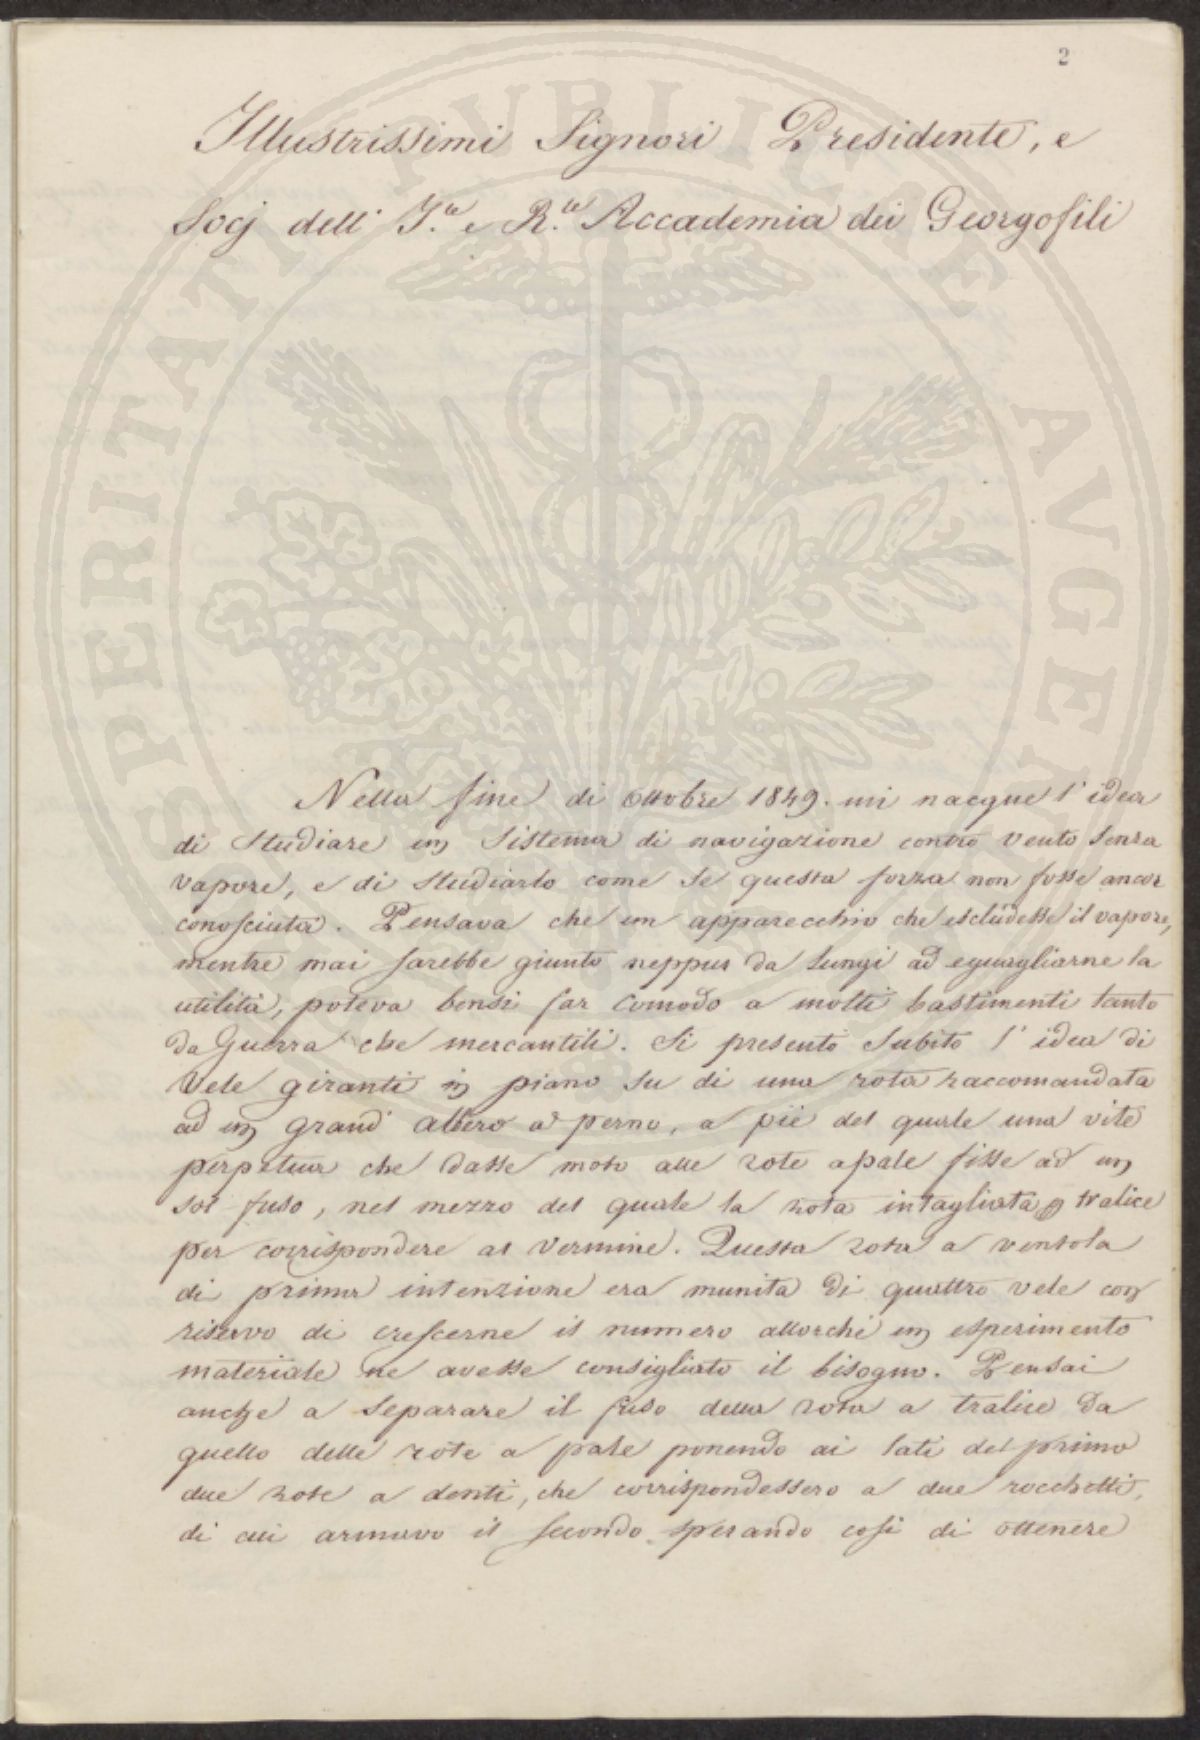 2
Illustrissimi Signori Presidente, e
Socj dell' I.le e R.le Accademia dei Georgofili
Nella fine di Ottobre 1849. mi nacque l'idea
di Studiare un Sistema di navigazione contro vento senza
vapore, e di studiarlo come se questa forza non fosse ancor
conosciuta. Pensava che un apparecchio che escludesse il vapore,
mentre mai sarebbe giunto neppur da lungi ad eguagliarne la
utilità, poteva bensì far comodo a molti bastimenti tanto
da Guerra che mercantili. Si presentò Subito l'idea di
Vele giranti in piano su di una rota raccomandata
ad un grand' albero a perno, a piè del quale una vite
perpetua che dasse moto alle rote a pale fisse ad un
sol fuso, nel mezzo del quale la rota intagliata a tralice
per corrispondere al Vermine. Questa rota a ventola
di prima intenzione era munita di quattro vele con
riservo di crescerne il numero allorchè un esperimento
materiale ne avesse consigliato il bisogno. Pensai
anche a separare il fuso della rota a tralice da
quello delle rote a pale ponendo ai lati del primo
due rote a denti, che corrispondessero a due rocchetti,
di cui armavo il secondo sperando così di ottenere
PROSPERITATI PVBLICAE AVGENDAE